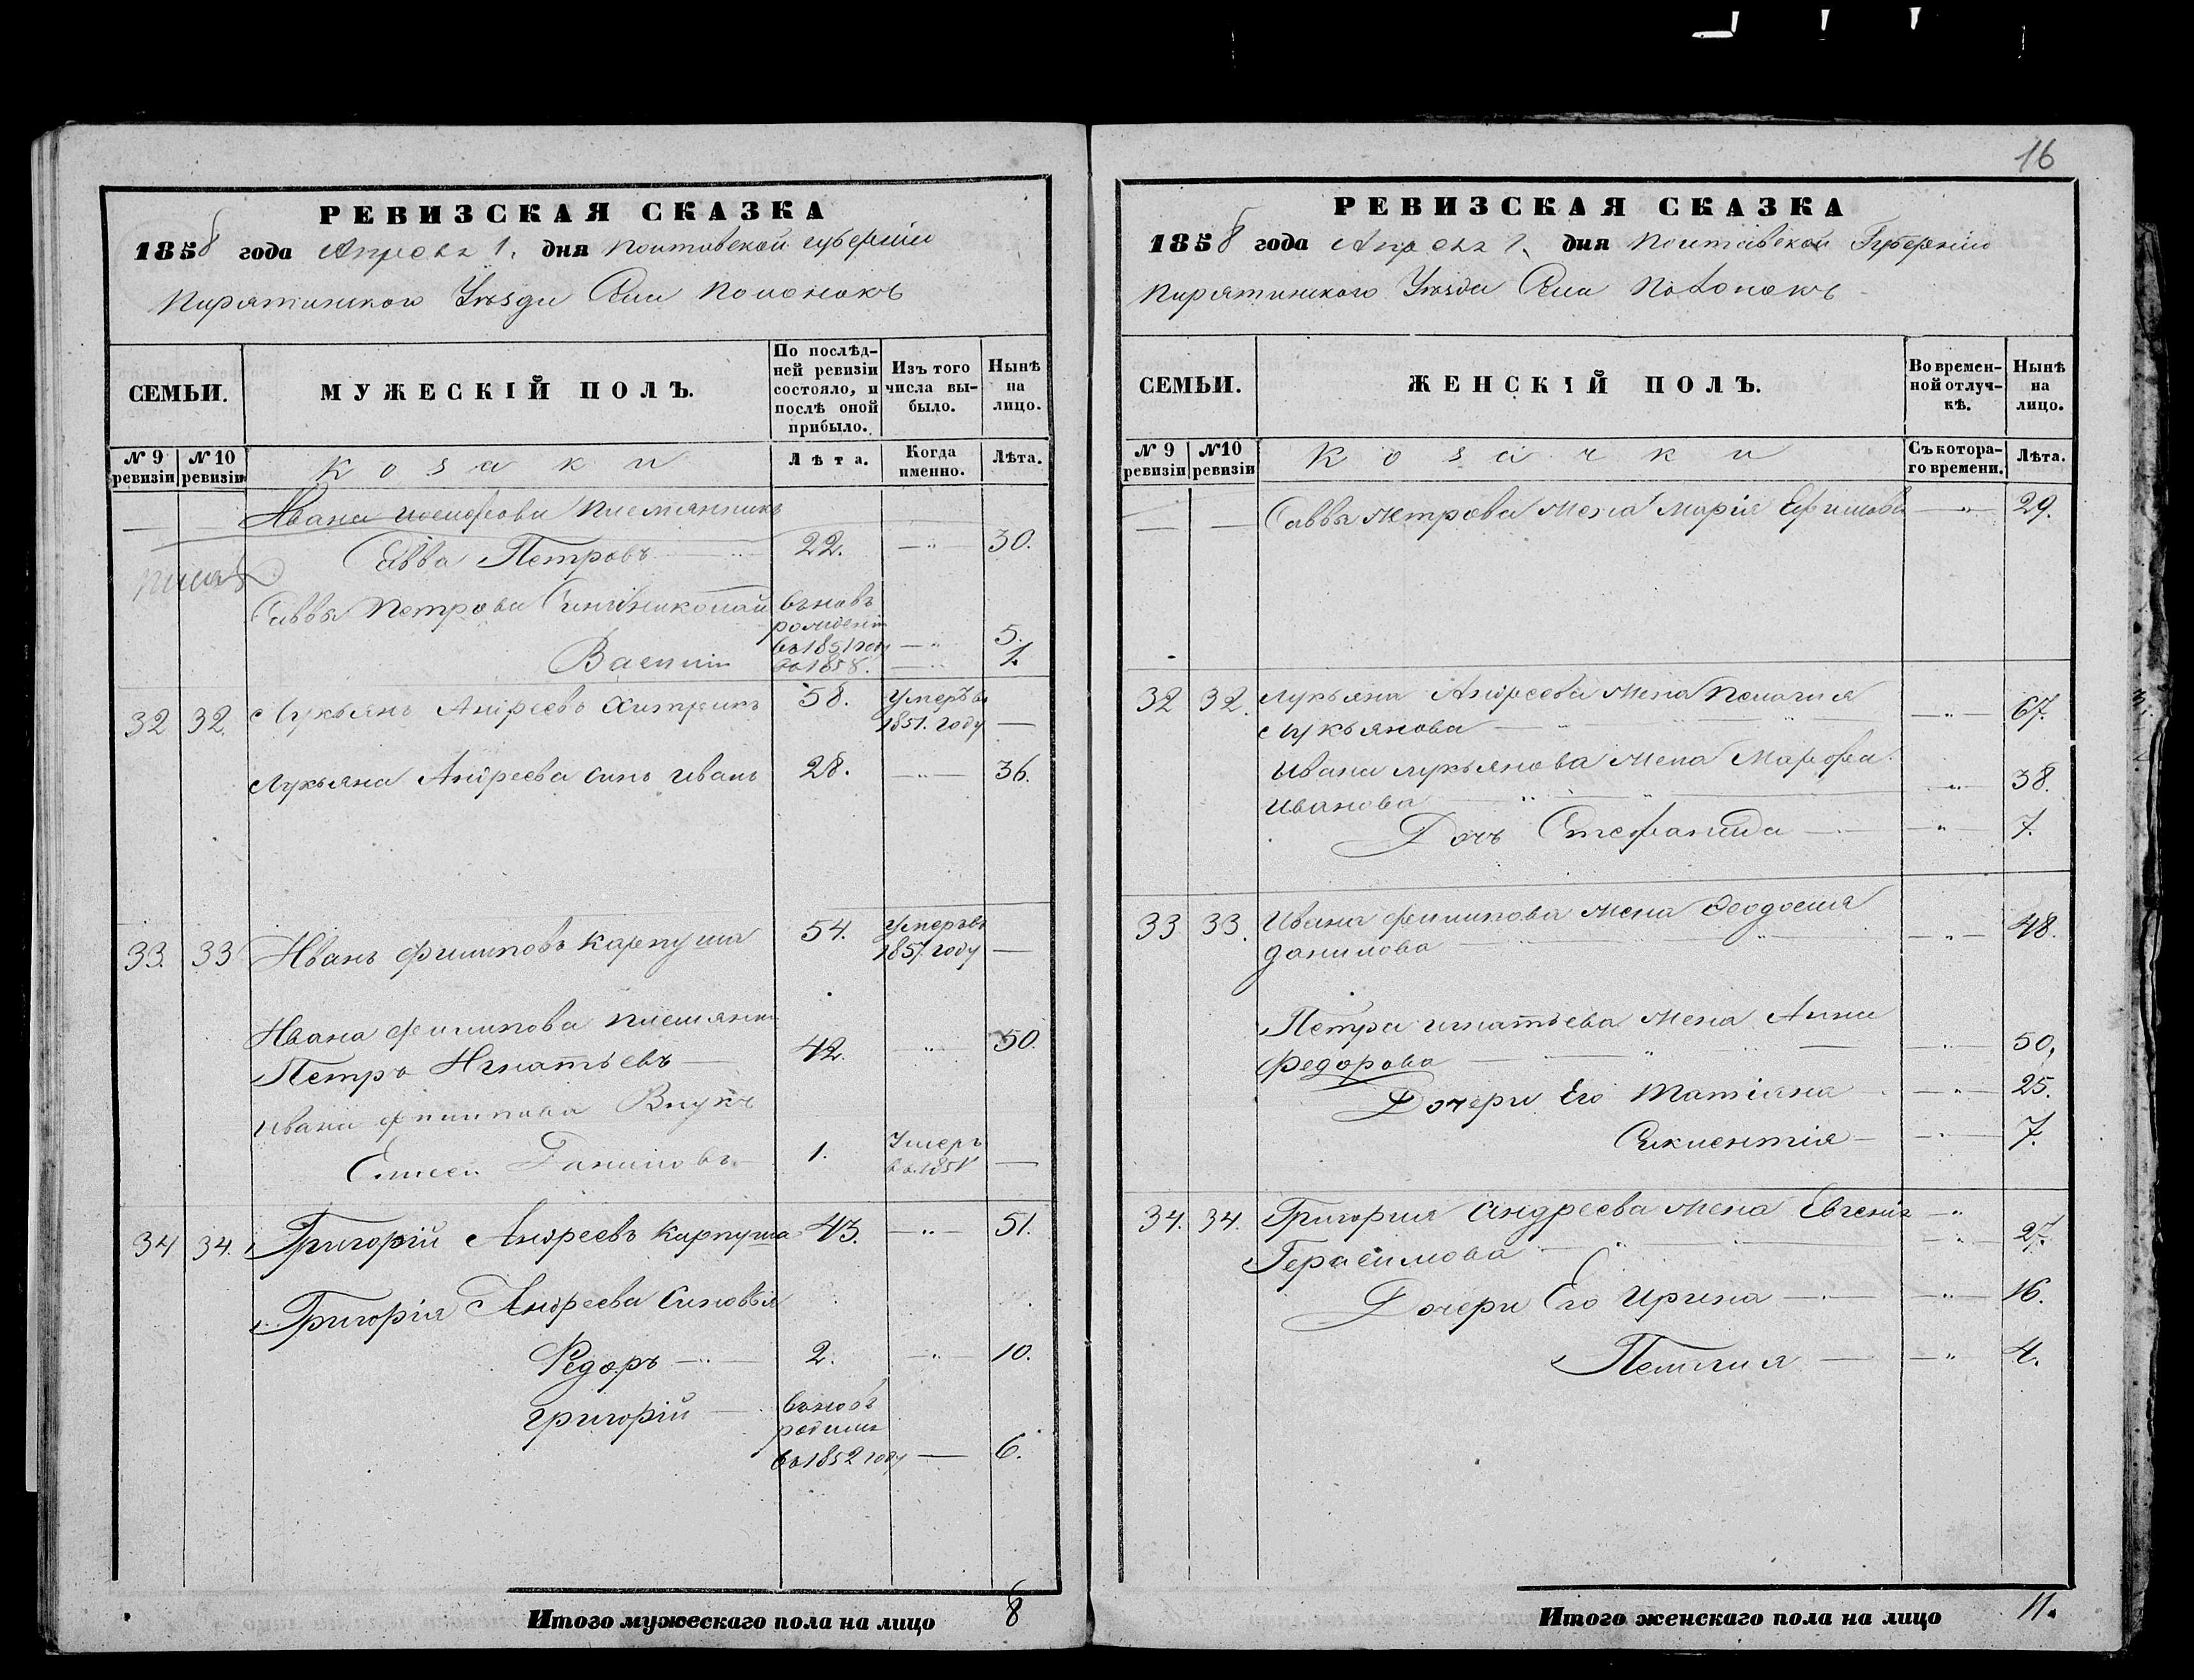 16
РЕВИЗСКАЯ СКАЗКА
1858 года Апреля 1. дня Полтавской губернии
Пирятинского Уезда Села Полонокъ
СЕМЬИ.
МУЖЕСКІЙ ПОЛЪ.
По послѣд-
ней ревизіи
состояло, и
послѣ оной
прибыло.
Изъ того
числа вы-
было.
Нынѣ
на
лицо.
№ 9
ревизіи
№ 10
ревизіи
Козаки
Лѣта.
Когда
именно.
Лѣта.
Ивана племянникъ
Савва Петровъ 22. 30.
Саввы Петрова Николай вновь
во 1851 году 5.
Василій во 1858. 1.
32 32. Лукьянъ Андреевъ 58. Умеръ въ
1851. году
Лукьяна Андреева сынъ Иванъ 28. 36.
33. 33 Иванъ Филиповъ Карпуша 54. Умеръ въ
1857. году
Ивана Филипова племянни
Петръ Игнатьевъ 42. 50.
Ивана Филипова Внукъ
Елисей Даниловъ 1. Умеръ
во 1851
34 34. Григорій Андреевъ Карпуша 43. 51.
Григорія Андреева Синовья
Федоръ 2. 10.
Григорій вновь
во 1852 году 6.
Итого мужескаго пола на лицо 8
РЕВИЗСКАЯ СКАЗКА
1858 года Апреля 1. дня Полтавской Губернии
Пирятинского Уезда Села Полонокъ
СЕМЬИ.
ЖЕНСКІЙ ПОЛЪ.
Во времен-
ной отлуч-
кѣ.
Нынѣ
на
лицо.
№ 9
ревизіи
№10
ревизіи
Козачки
Съ котора-
го времени.
Лѣта.
Саввы Петрова жена Марія Ефимова 29.
32 32. Лукьяна Андреева жена Пелагия
Лукьянова 67.
Ивана Лукьянова жена Марфа
Иванова 38.
Дочь Стефанида 7.
33 33. Ивана Филипова жена Феодосия
Данилова 48.
Петра Игнатьева жена Анна
Федорова 50.
Дочери Его Татіяна 25.
7.
34. 34. Григория Андреева жена Евгенія
Герасимова 27.
Дочери Его Ирина 16.
Пелагия 4.
Итого женскаго пола на лицо 11.